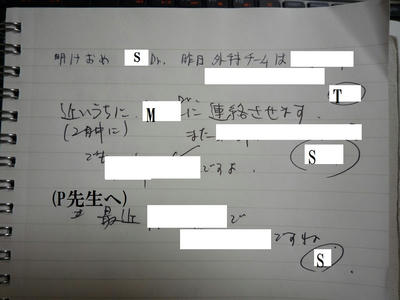 明けおめ S Dr. 昨日 外科チームは
T
近いうちに M Dr. に連絡させます.
(2月中に) また
S
でも ですよ.
(P先生へ)
最近 で
ですね
S